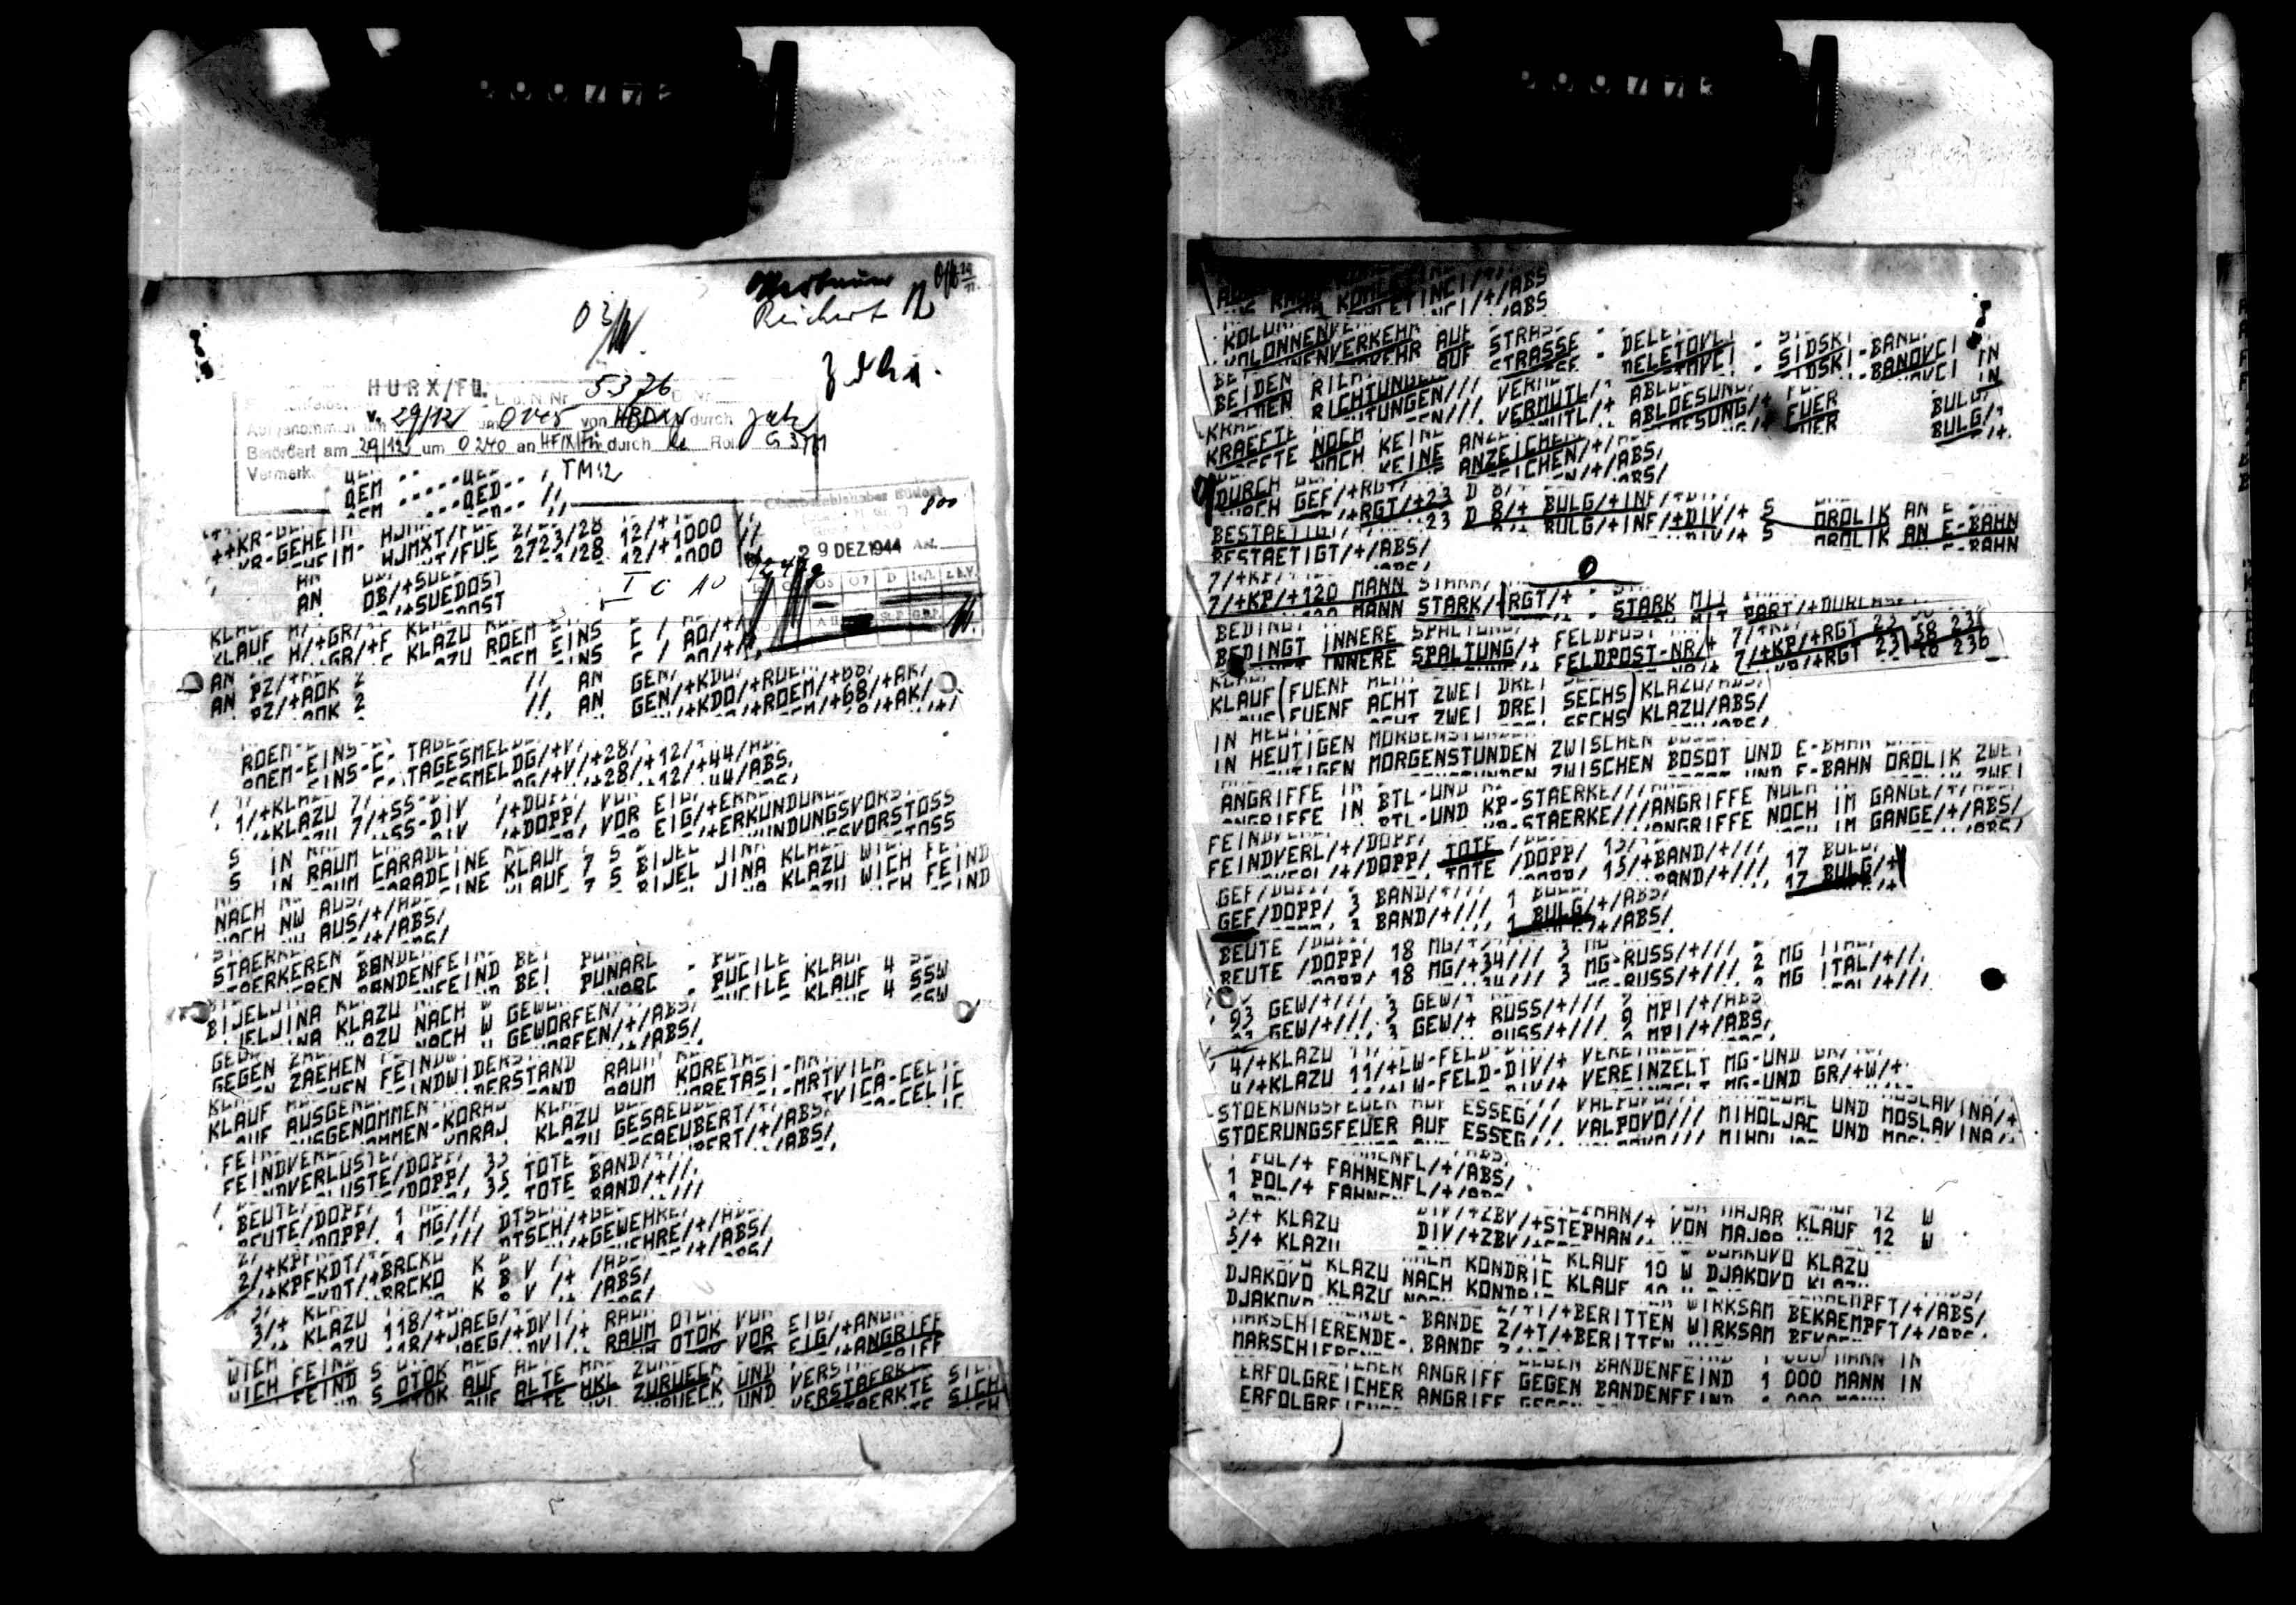 Reichert
HURX/FU. L. d. N Nr. 5376
29/12 um 0145 von HBDXW durch
Befördert am 29/12 um 0240 an durch Rol.
Vermerk.
QEM -----QED-- /
++KR-GEHEIM- HJMXT/FUE 2723/28 12/+1000 //
800
29 DEZ 1944 Anl.
AN OB/+SUEDOST
I c AO
KLAUF H/+GR/+F KLAZU ROEM EINS C / AO/+/
AN PZ/+AOK 2 // AN GEN/+KDO/+ROEM/+68/+AK/
ROEM-EINS-C- TAGESMELDG/+V/+28/+12/+44/ABS/
1/+KLAZU 7/+SS-DIV /+DOPP/ VOR EIG/+ERKUNDUNGSVORSTOSS
S IN RAUM CARADCINE KLAUF 7 S BIJEL JINA KLAZU WICH FEIND
NACH NW AUS/+/ABS/
STAERKEREN BANDENFEIND BEI PUNARC - PUCILE KLAUF 4 SSW
BIJELJINA KLAZU NACH W GEWORFEN/+/ABS/
GEGEN ZAEHEN FEINDWIDERSTAND RAUM KORETASI-MRTVICA-CELIC
KLAUF AUSGENOMMEN-KORAJ KLAZU GESAEUBERT/+/ABS/
FEINDVERLUSTE/DOPP/ 35 TOTE BAND/+///
BEUTE/DOPP/ 1 MG/// DTSCH/+GEWEHRE/+/ABS/
2/+KPFKDT/+BRCKO K B V /+ /ABS/
3/+ KLAZU 118/+JAEG/+DVI/+ RAUM OTOK VOR EIG/+ANGRIFF
WICH FEIND S OTOK AUF ALTE HKL ZURUECK UND VERSTAERKTE SICH
KOLONNENVERKEHR AUF STRASSE - DELETOVCI - SIDSKI-BANOVCI IN
BEIDEN RICHTUNGEN/// VERMUTL/+ ABLOESUNG/+ FUER BULG/+
KRAEFTE NOCH KEINE ANZEICHEN/+/ABS/
DURCH GEF/+RGT/+23 D 8/+ BULG/+INF/+DIV/+ S OROLIK AN E-BAHN
BESTAETIGT/+/ABS/
7/+KP/+120 MANN STARK/+RGT/+ - STARK MIT PART/+DURCHSETZT
BEDINGT INNERE SPALTUNG/+ FELDPOST-NR/+ 7/+KP/+RGT 23 58 236
KLAUF FUENF ACHT ZWEI DREI SECHS KLAZU/ABS/
IN HEUTIGEN MORGENSTUNDEN ZWISCHEN BOSOT UND E-BAHN OROLIK ZWEI
ANGRIFFE IN BTL-UND KP-STAERKE///ANGRIFFE NOCH IM GANGE/+/ABS/
FEINDVERL/+/DOPP/ TOTE /DOPP/ 15/+BAND/+/// 17 BULG/+
GEF/DOPP/ 3 BAND/+/// 1 BULG/+/ABS/
BEUTE /DOPP/ 18 MG/+34/// 3 MG-RUSS/+/// 2 MG ITAL/+///
93 GEW/+/// 3 GEW/+ RUSS/+/// 9 MPI/+/ABS/
4/+KLAZU 11/+LW-FELD-DIV/+ VEREINZELT MG-UND GR/+W/+
STOERUNGSFEUER AUF ESSEG/// VALPOVO/// MIHOLJAC UND MOSLAVINA/+
1 POL/+ FAHNENFL/+/ABS/
5/+ KLAZU DIV/+ZBV/+STEPHAN/+ VON MAJAR KLAUF 12 W
DJAKOVO KLAZU NACH KONDRIC KLAUF 10 W DJAKOVO KLAZU
MARSCHIERENDE- BANDE 2/+T/+BERITTEN WIRKSAM BEKAEMPFT/+/ABS/
ERFOLGREICHER ANGRIFF GEGEN BANDENFEIND 1 000 MANN IN